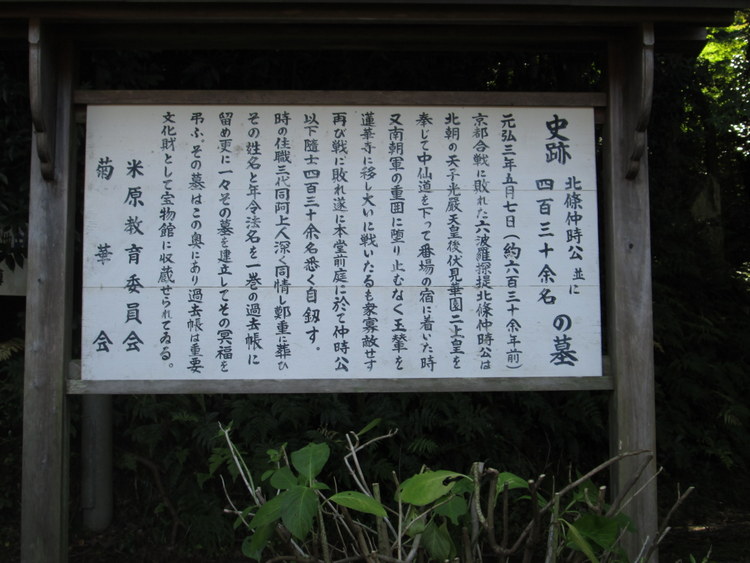 史跡 北條仲時公 並に 四百三十余名 の墓
元弘三年五月七日（約六百三十余年前）
京都合戦に敗れた六波羅探提北條仲時公は
北朝の天子光厳天皇後伏見華園二上皇を
奉じて中仙道を下って番場の宿に着いた時
又南朝軍の重囲に堕り止むなく玉輦を
蓮華寺に移し大いに戦いたるも衆寡敵せず
再び戦に敗れ遂に本堂前庭に於て仲時公
以下随士四百三十余名悉く自刎す。
時の住職三代同阿上人深く同情し鄭重に葬ひ
その姓名と年令法名を一巻の過去帳に
留め更に一々その墓を建立してその冥福を
弔ふ。その墓はこの奥にあり過去帳は重要
文化財として宝物館に収蔵せられてゐる。
米原教育委員会
菊華会